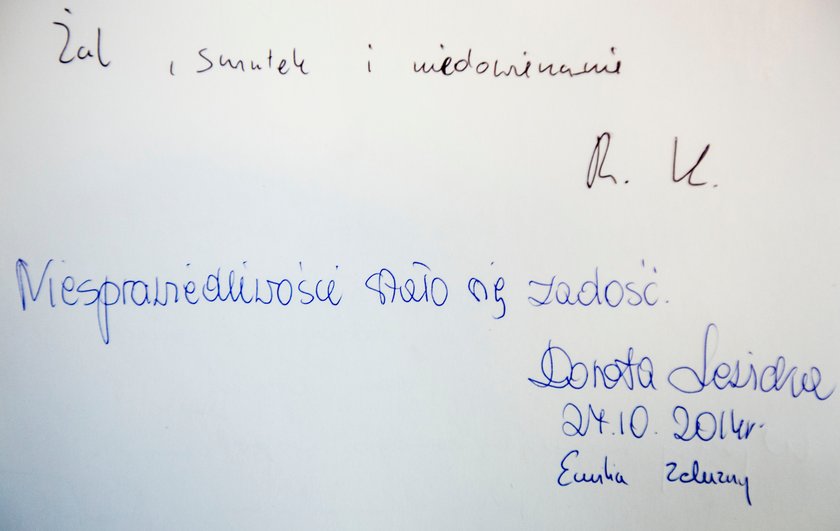 Żal , smutek i niedowierzanie
R. K.
Niesprawiedliwości stało się zadość.
Dorota
27.10. 2014r.
Emilia